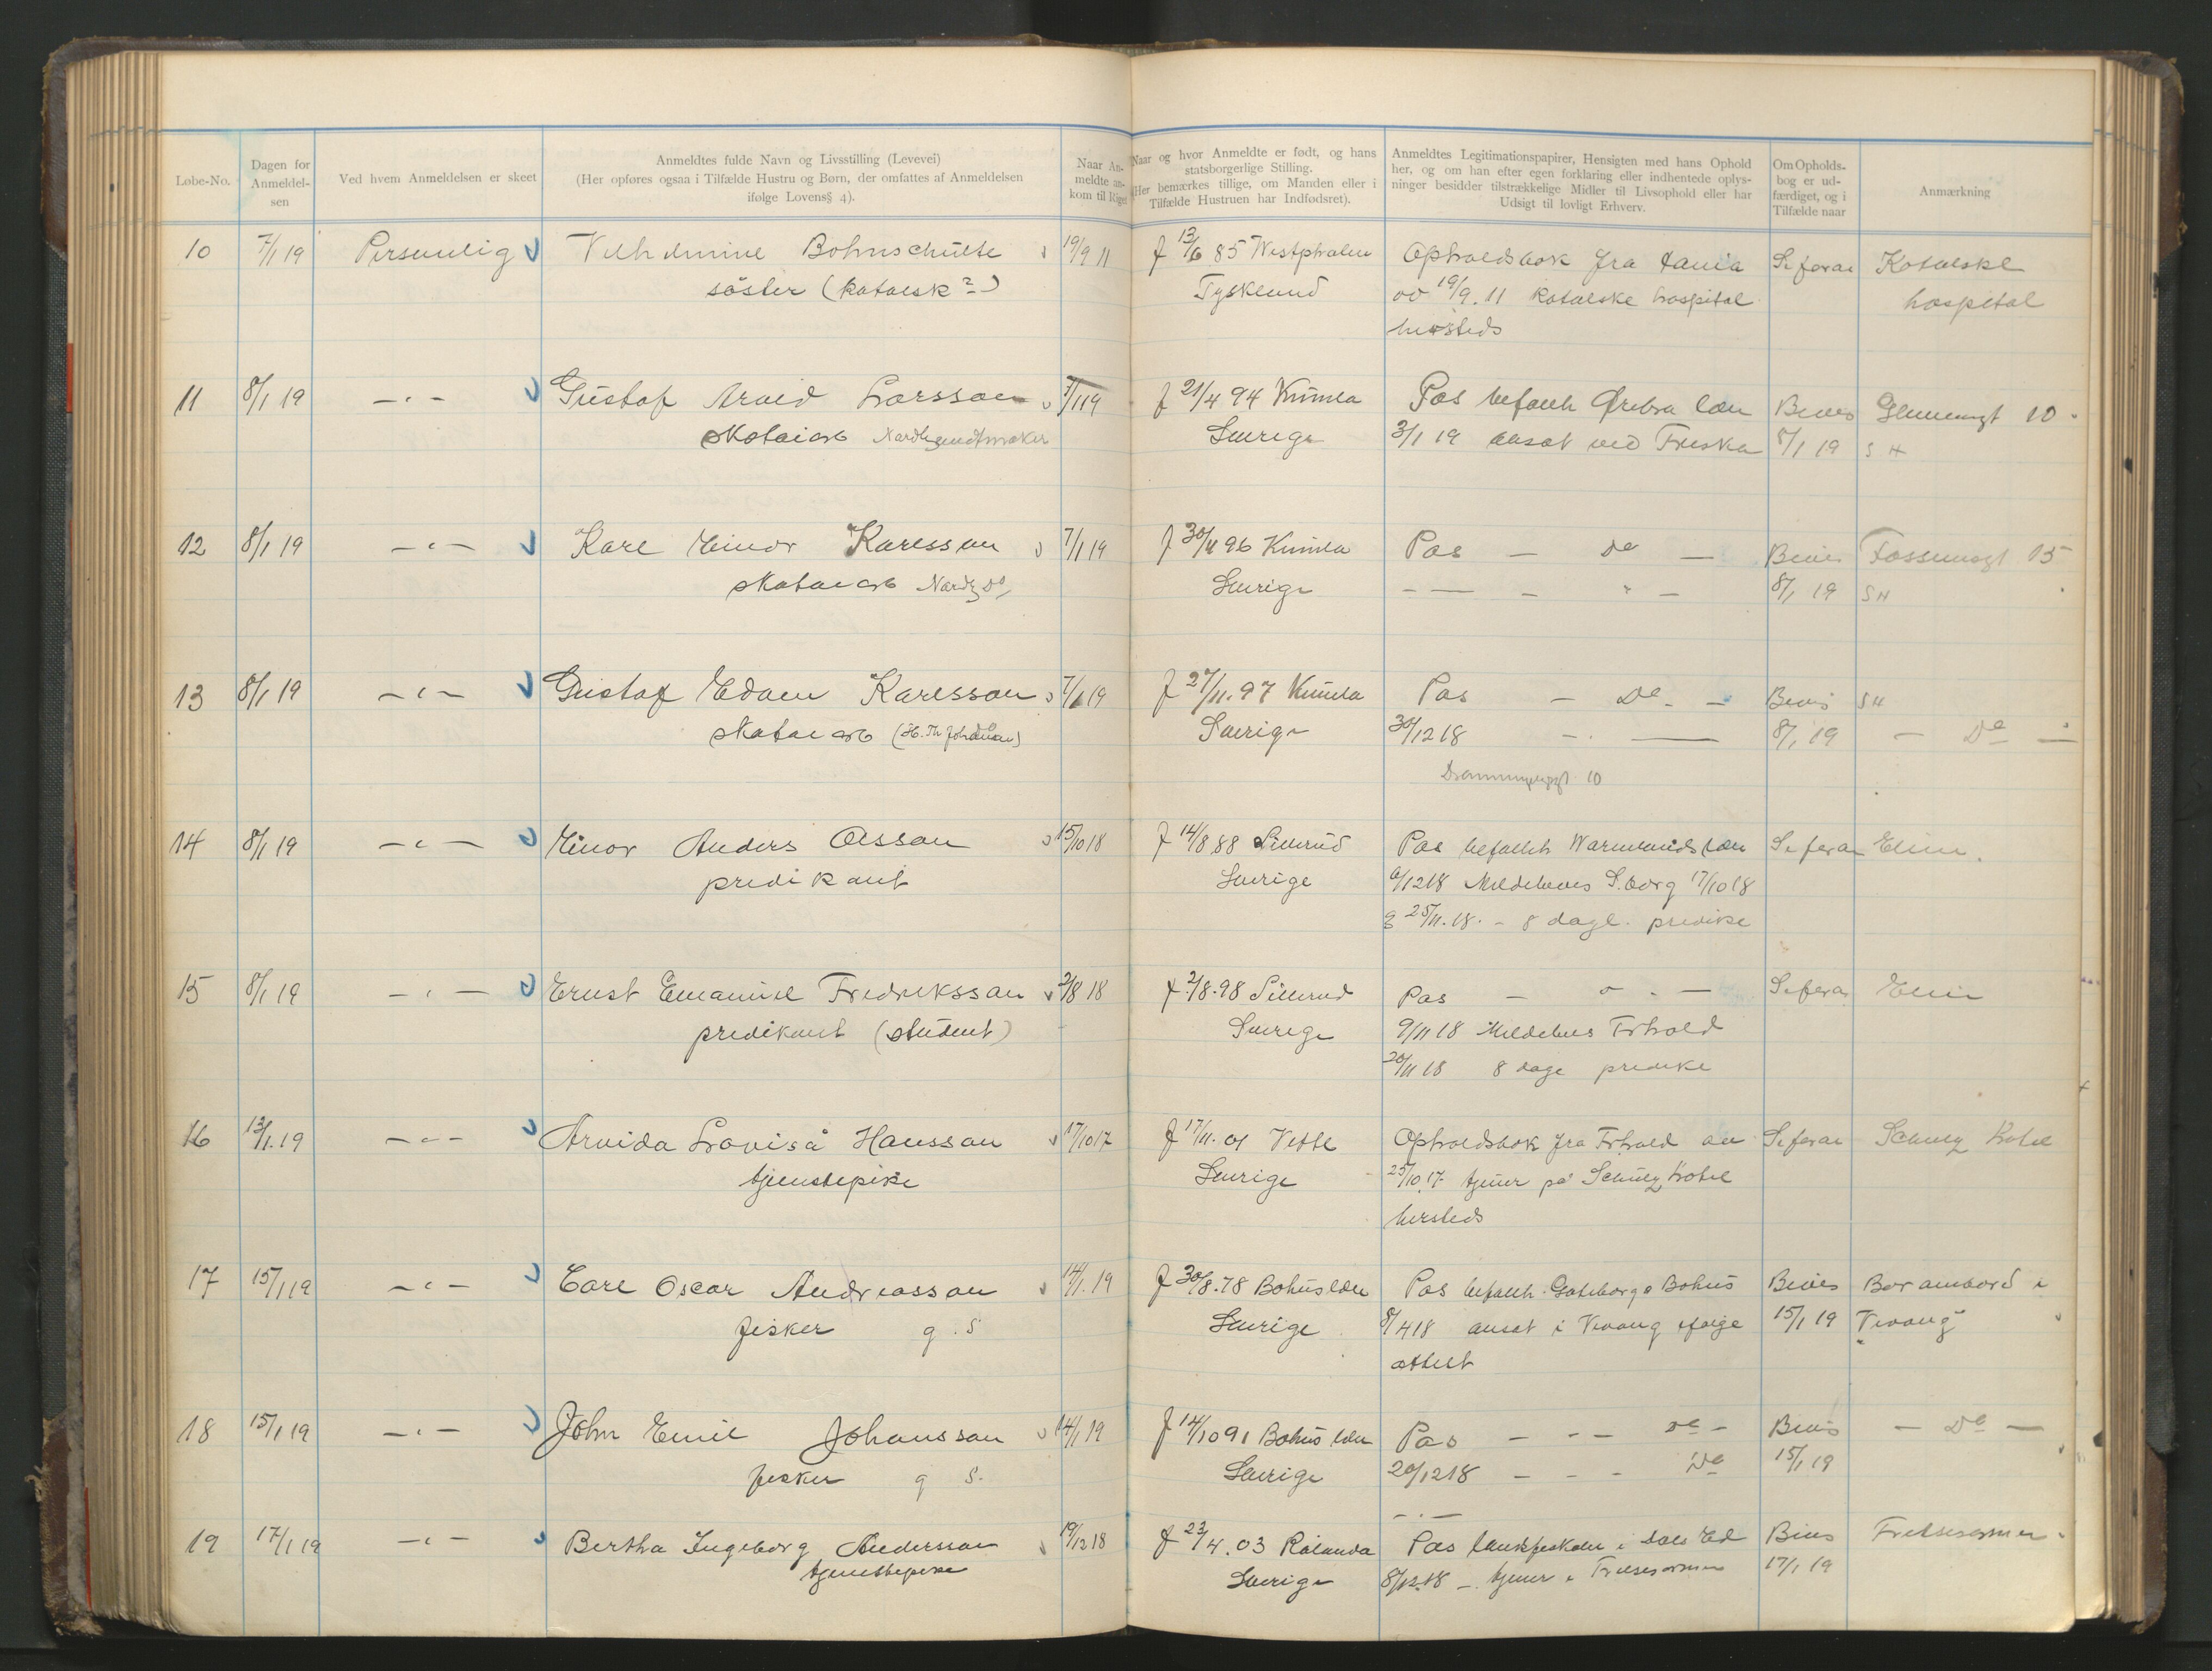 Løbe-No.
Dagen for Anmeldel- sen
Ved hvem Anmeldelsen er skeet
Anmeldtes fulde Navn og Livsstilling (Levevei)
(Her opføres ogsaa i Tilfælde Hustru og Børn, der omfattes af Anmeldelsen
ifølge Lovens § 4).
Naar An- meldte an- kom til Riget
Naar og hvor Anmeldte er født, og hans
statsborgerlige Stilling.
(Her bemærkes tillige, om Manden eller i
Tilfælde Hustruen har Indfødsret).
Anmeldtes Legitimationspapirer, Hensigten med hans Ophold
her, og om han efter egen forklaring eller indhentede oplys-
ninger besidder tilstrækkelige Midler til Livsophold eller har
Udsigt til lovligt Erhverv.
Om Opholds- bog er ud- færdiget, og i Tilfælde naar
Anmærkning
10 7/1 19 Personlig Vilhelmine Bohnschulte 19/9 11 f 13/6 85 Westphalen Opholdsbok fra Hania Se foran Katolske
søster (katolsk) Tyskland av 19/9. 11 katolske hospital hospital
hersteds
11 8/1 19 Gustaf Arvid Larsson 7/1 19 f 21/4 94 Kumla Pas befalh Ørebro læn Bevis Glemmengt 10
skotøiarb Sverige 3/1 19 ansat ved Freska 8/1 19 S H
12 8/1 19 Karl Einar Karlsson 7/1 19 f 30/4 96 Kumla Pas — Do — Bevis Fossumsgt 15
skotøiarb Sverige 8/1 19 S H
13 8/1 19 Gustaf Edvin Karlsson 7/1 19 f 27/11. 97 Kumla Pas — Do — Bevis S H
skotøiarb (H. Th Johansen) Sverige 30/12 18 8/1 19 — Do —
10
14 8/1 19 Einar Anders Olsson 15/10 18 f 14/8 88 Sillerud Pas befalh Warmlands læn Se foran Elim.
predikant Sverige 6/12 18 Meldebevis S.borg 17/10 18
25/11. 18. – 8 dage. predike
15 8/1 19 Ernst Emanuel Fredriksson 2/8 18 f. 2/8. 98 Sillerud Pas — Se foran Elim
predikant (student) Sverige 9/11 18 Meldebevis Frhald
20/11 18 8 dage predike
16 13/1. 19 Arvida Lovisa Hansson 17/10 17 f 17/11. 01 Vette Opholdsbok fra Frhald av Se foran Schulz hotel
tjenestepike Sverige 25/10. 17 tjener på Schulz hotel
hersteds
17 15/1 19 Carl Oscar Andreasson 14/1. 19 f 30/8. 78 Bohuslæn Pas befalh. Gøteborg o Bohus Bevis Bor ombord i
fisker g. S. Sverige 8/4 18 ansat i ifølge 15/1 19
attest
18 15/1 19 John Emil Johansson 14/1 19 f 14/10 91 Bohuslæn Pas — Do — Bevis — Do —
fisker g S. Sverige 20/12 18 — Do 15/1 19
19 17/1 19 Bertha Ingeborg Andersson 19/12 18 f 23/4. 03 Rølanda Pas landsfiskalen i Dals Ed Bevis Frelsesarmen
tjenestepike Sverige 8/12. 18 – tjener i Frelsesarmen 17/1 19